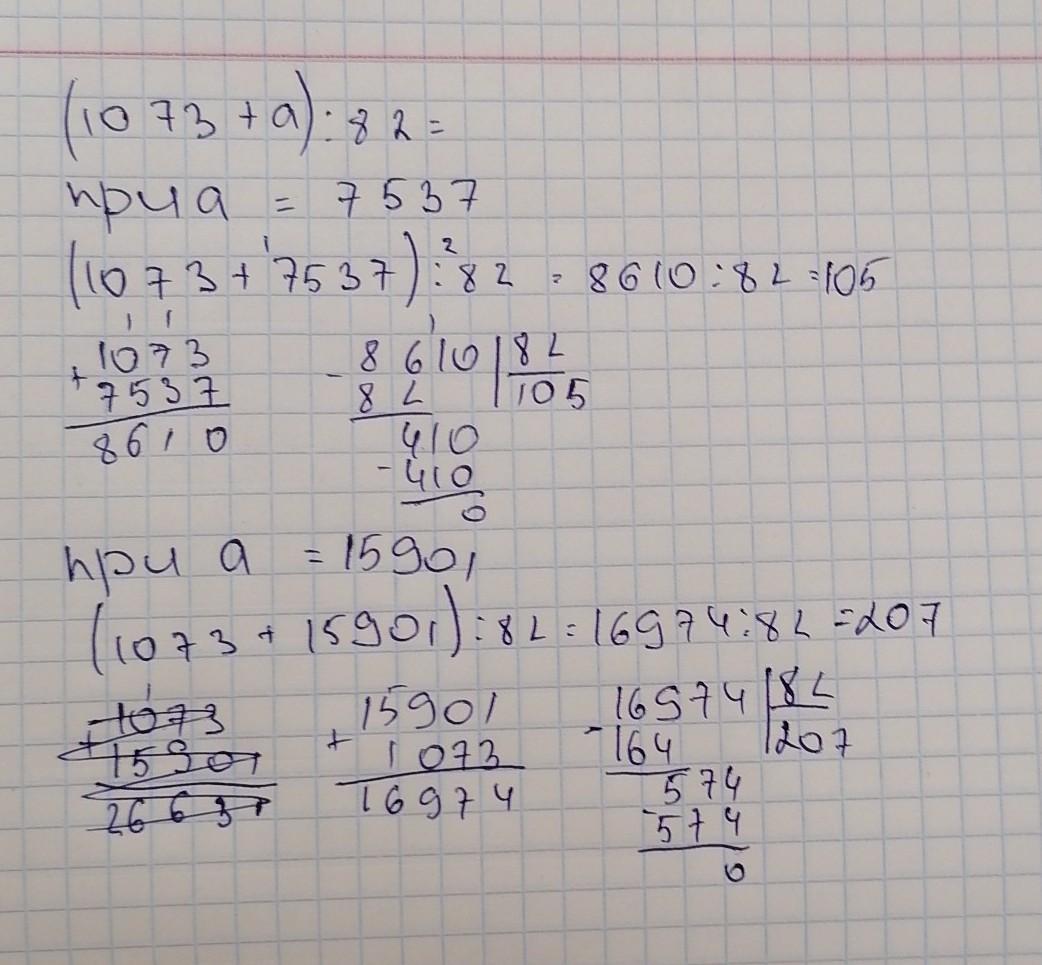 (1073 + a) : 82 =
при a = 7537
(1073 + 7537) : 82 = 8610 : 82 = 105
1 2
1 1
1
+ 1073
7537
8610
- 8610 | 82
82 | 105
410
- 410
0
при a = 15901
(1073 + 15901) : 82 = 16974 : 82 = 207
1
+ 1073
15901
26631
+ 15901
1073
16974
- 16974 | 82
164 | 207
574
- 574
0